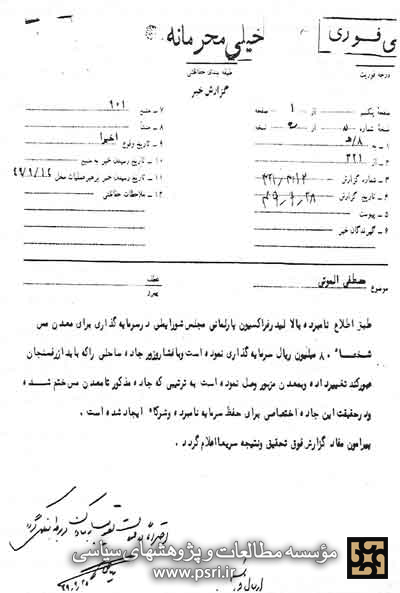 خیلی محرمانه
ی فوری
طبقه بندی حفاظتی
درجه فوریت
گزارش خبر
صفحه یکم از ۱ صفحه
نسخه شماره ۵ از نسخه
۱ - به ۵/۸
۲ - از ۳۲۱
۳ - شماره گزارش
۴ - تاریخ گزارش
۵ - پیوست
۶ - گیرندگان خبر
۷ - منبع ۹۰۱
۸ - منشأ
۹ - تاریخ وقوع اخیرا
۱۰ - تاریخ رسیدن خبر به منبع
۱۱ - تاریخ رسیدن خبر برهبر عملیات محل
۱۲ - ملاحظات حفاظتی
موضوع مصطفی الموتی
عطف
پیرو
طبق اطلاع نامبرده بالا لیدر فراکسیون پارلمانی مجلس شورایملی در سرمایه گذاری برای معدن مس
شخصاً ۸۰ میلیون ریال سرمایه گذاری نموده است و با فشار و زور جاده ساحلی را که باید از رفسنجان
عبور کند تغییر داده و بمعدن مزبور وصل نموده است به ترتیبی که جاده مذکور تا معدن مس ختم شده
و در حقیقت این جاده اختصاصی برای حفظ سرمایه نامبرده و شرکاء ایجاد شده است .
پیرامون مفاد گزارش فوق تحقیق و نتیجه سریعا اعلام گردد .
مؤسسه مطالعات و پژوهشهای سیاسی
www.psri.ir